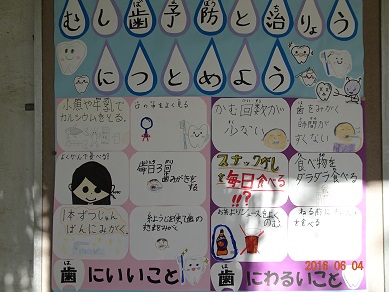 むし歯予防と治りょう
につとめよう
小魚や牛乳で
カルシウムをとる。
よくかんで食べる
1本ずつじゅん
ばんにみがく。
毎日3回
歯みがきを
する
糸ようじを使って歯の
かむ回数が
少ない
歯をみがく
時間が
すくない
スナックがしを
毎日食べる
!!?
食べ物を
ダラダラ食べる
おちゃよりジュースをよく
のむ
歯にいいこと
歯にわるいこと
2016 06 04